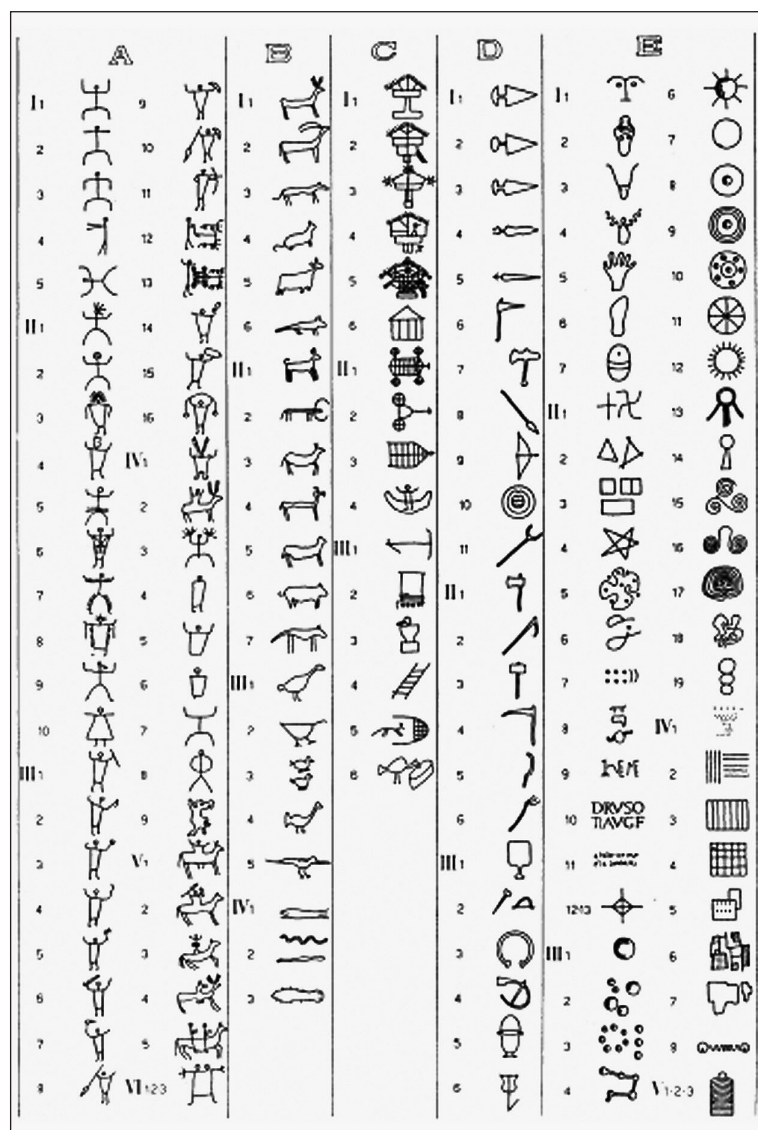 A
I1
2
3
4
5
II1
2
3
4
5
6
7
8
9
10
III1
2
3
4
5
6
7
8
9
10
11
12
13
14
15
16
IV1
2
3
4
5
6
7
8
9
V1
2
3
4
5
VI1·2·3
B
I1
2
3
4
5
6
II1
2
3
4
5
6
7
III1
2
3
4
5
IV1
2
3
C
I1
2
3
4
5
6
II1
2
3
4
III1
2
3
4
5
6
D
I1
2
3
4
5
6
7
8
9
10
11
II1
2
3
4
5
6
III1
2
3
4
5
6
E
I1
2
3
4
5
6
7
II1
2
3
4
5
6
7
8
9
10 DRVSO
TI.AVGF
11
12·13
III1
2
3
4
6
7
8
9
10
11
12
13
14
15
16
17
18
19
IV1
2
3
4
5
6
7
8
V1·2·3